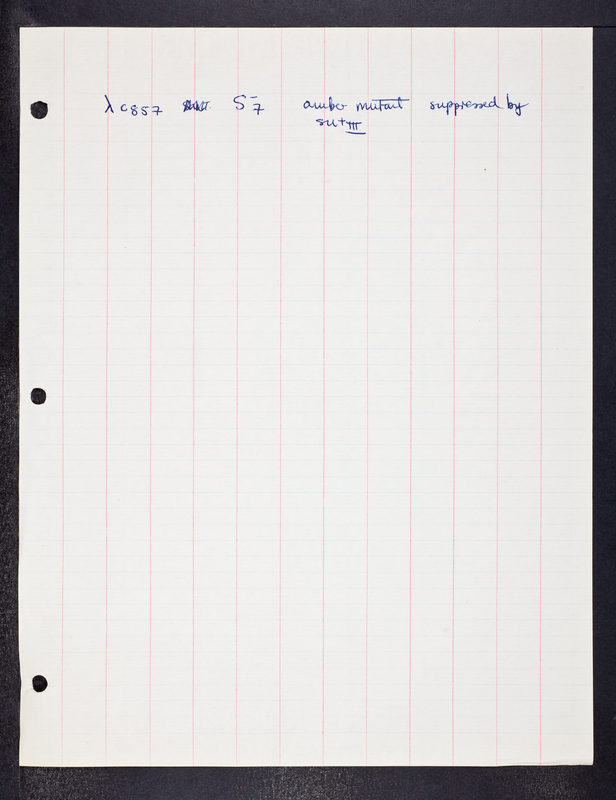 λ c857 S⁻7 amber mutant suppressed by
su+III